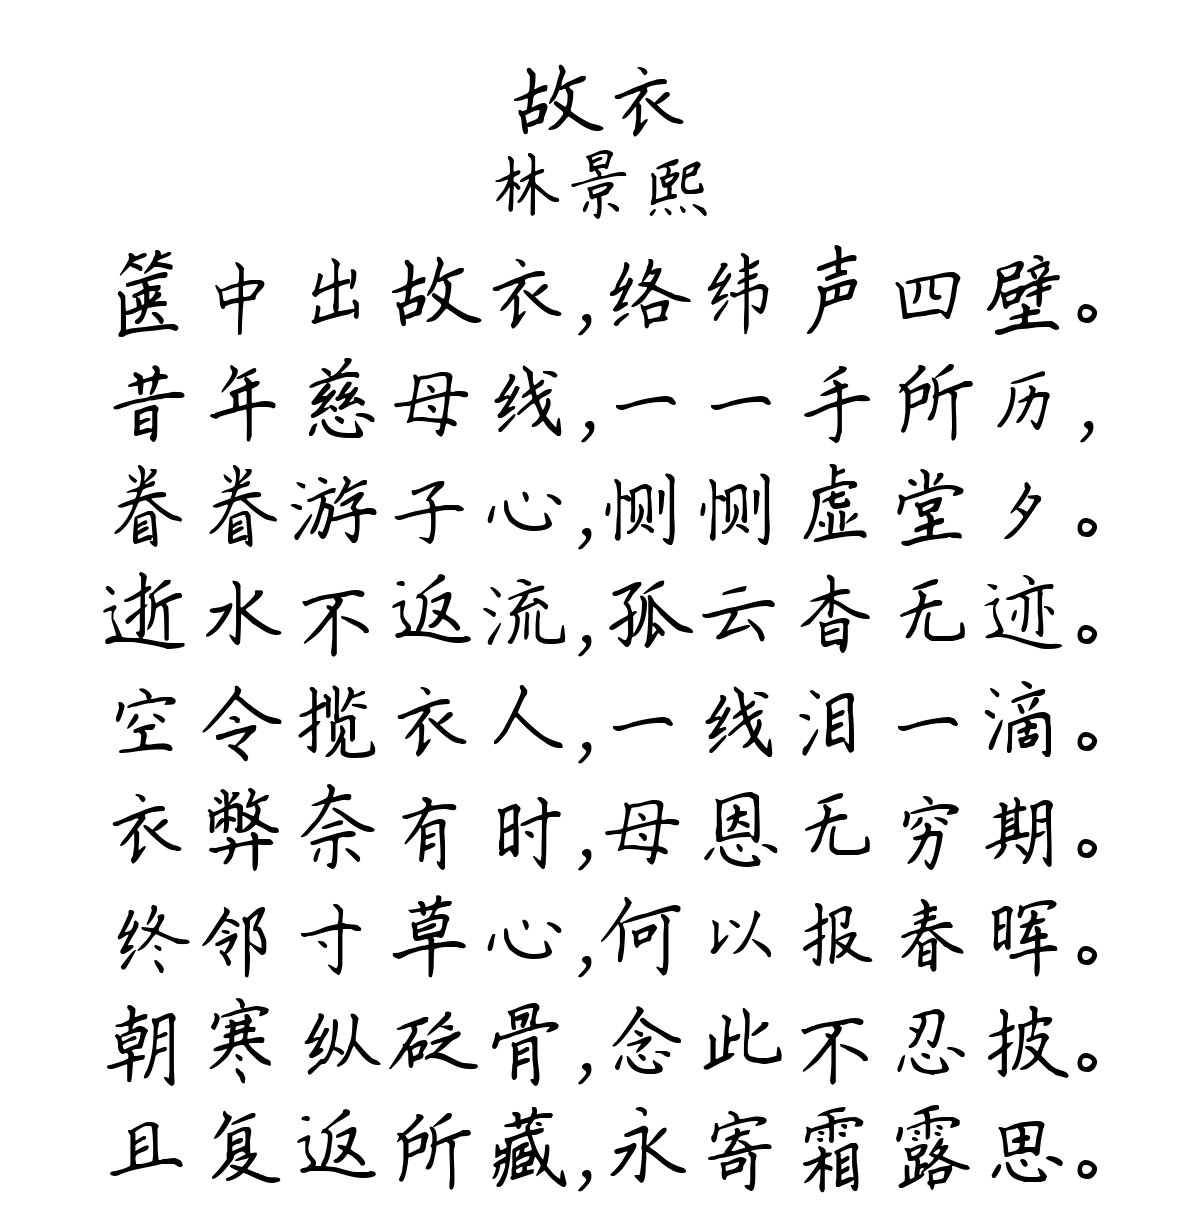 故衣
林景熙
箧中出故衣,络纬声四壁。
昔年慈母线,一一手所历,
眷眷游子心,恻恻虚堂夕。
逝水不返流,孤云杳无迹。
空令揽衣人,一线泪一滴。
衣弊奈有时,母恩无穷期。
终邻寸草心,何以报春晖。
朝寒纵砭骨,念此不忍披。
且复返所藏,永寄霜露思。